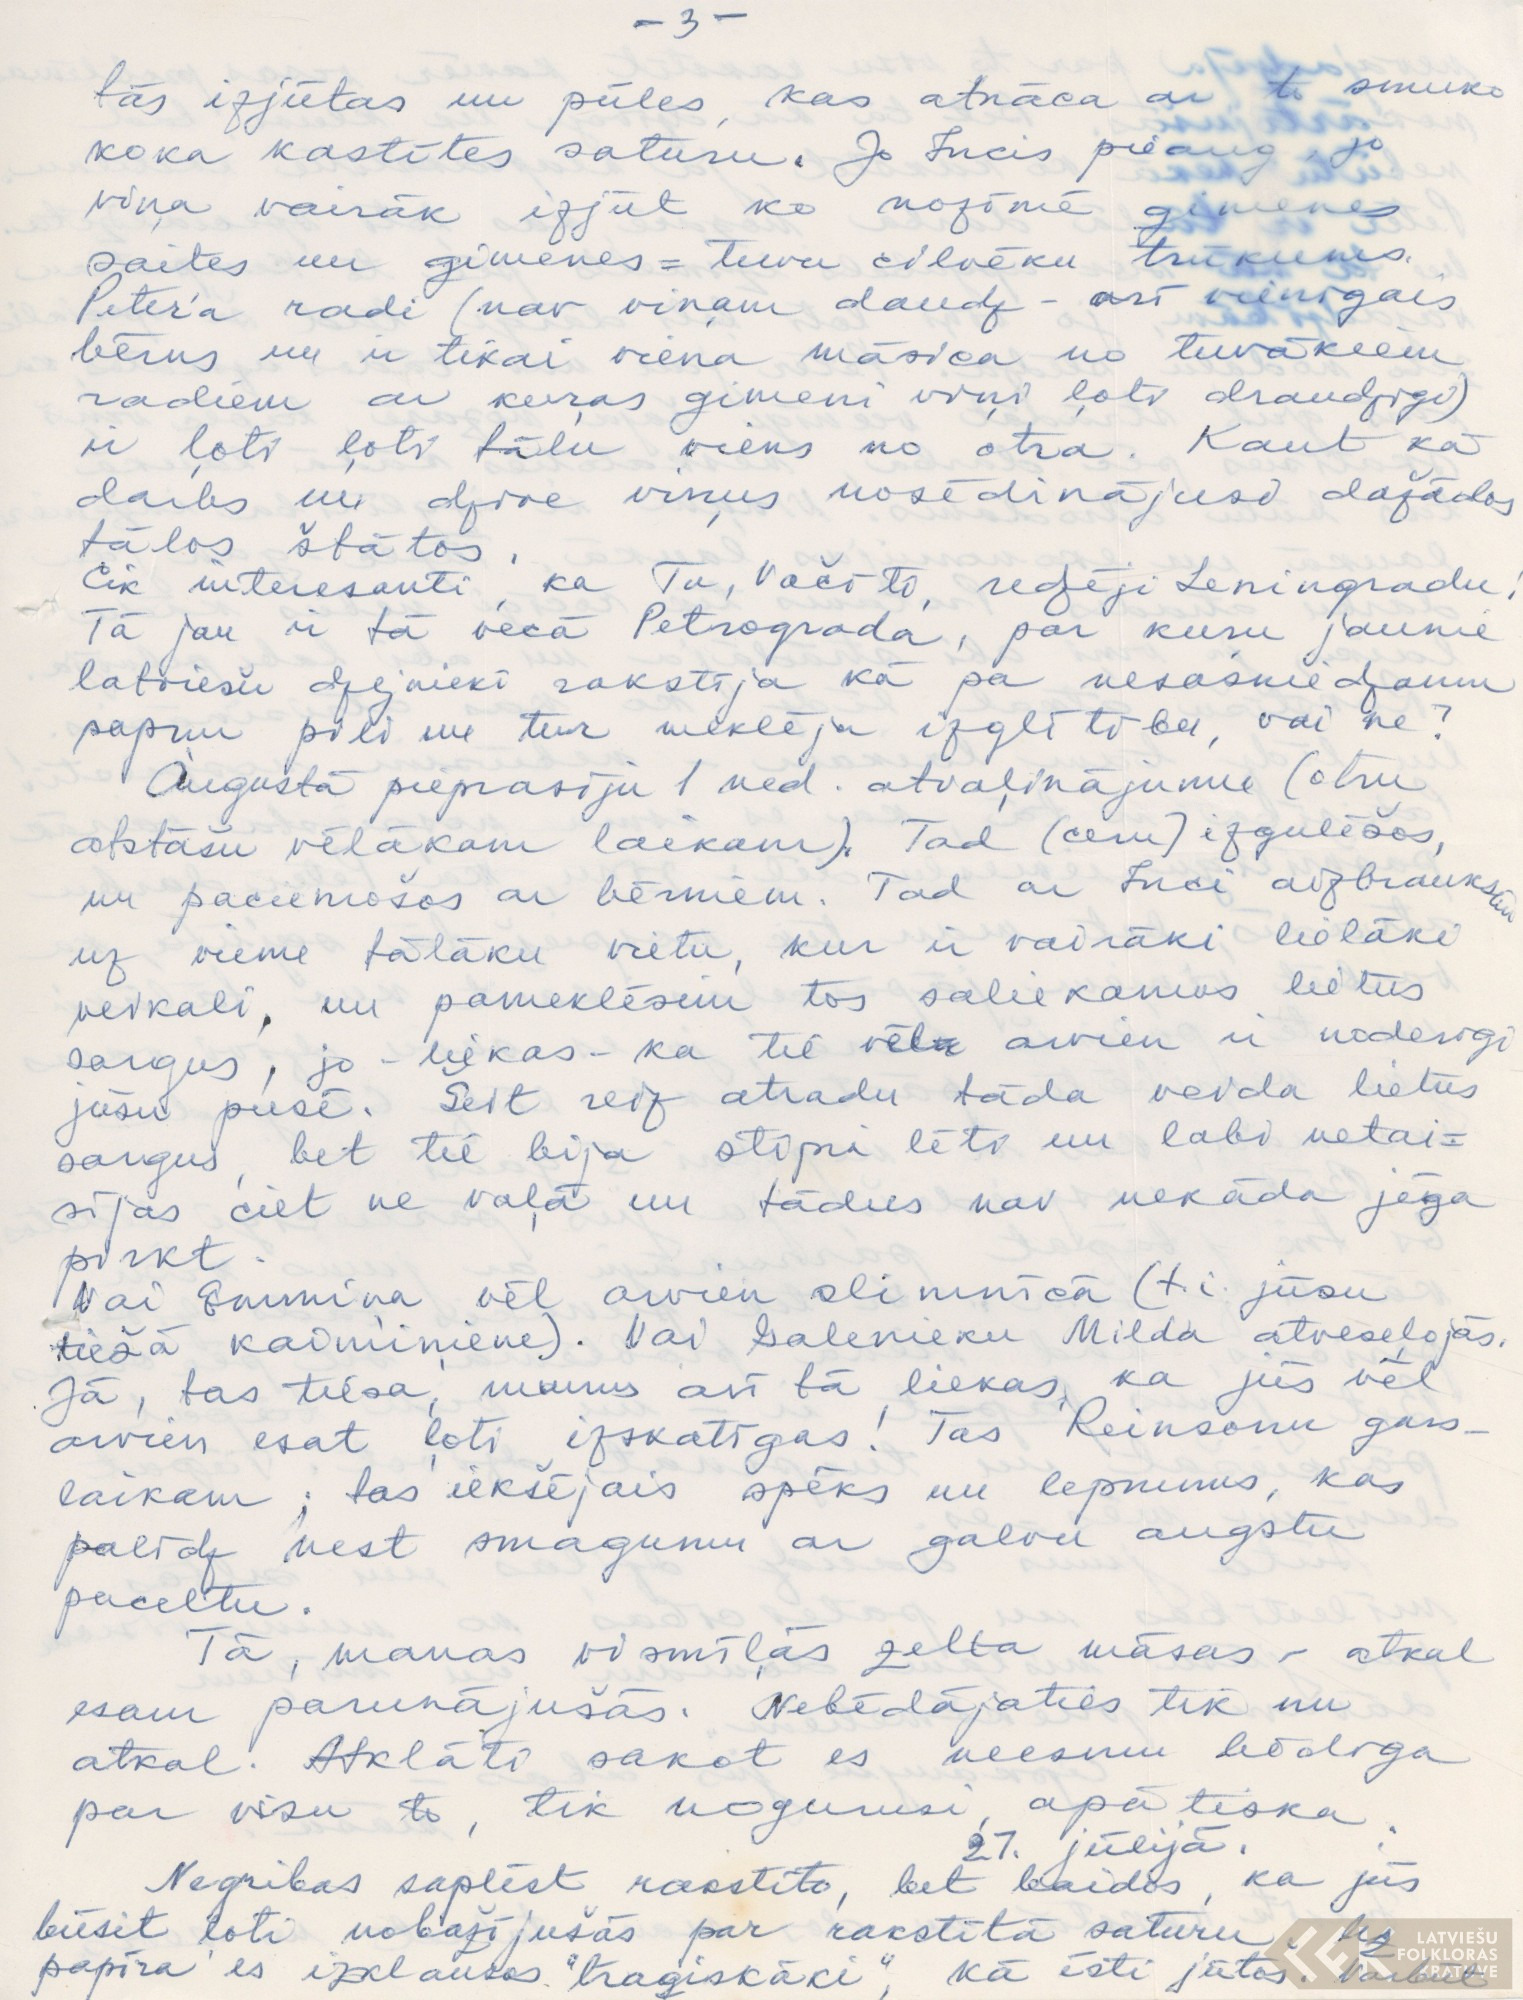 - 3 -
tās izjūtas un pūles, kas atnāca ar to smuko
koka kastītes saturu. Jo Incis pieaug, jo
viņa vairāk izjūt ko nozīmē ģimenes
saites un ģimenes = tuvu cilvēku trūkums.
Peter'a radi (nav viņam daudz - arī vienīgais
bērns un ir tikai viena māsica no tuvākiem
radiem ar kuŗas ģimeni viņi ļoti draudzīgi)
ir ļoti ļoti tālu viens no otra. Kaut kā
darbs un dzīve viņus nosēdinājusi dažādos
tālos štātos.
Cik interesanti, ka Tu, Vačīti, redzēji Leningradu!
Tā jau ir tā vecā Petrograda, par kuŗu jaunie
latviešu dzejnieki rakstīja kā pa nesasniedzamu
sapņu pili un tur meklēja izglītību, vai ne?
Augustā pieprasīju 1 ned. atvaļinājumu (otru
atstāšu vēlākam laikam). Tad (ceru) izgulēšos,
un paciemošos ar bērniem. Tad ar Inci aizbrauksim
uz vienu tālāku vietu, kur ir vairāki lielāki
veikali, un pameklēsim tos saliekamos lietus
sargus, jo - liekas - ka tie vēl arvien ir noderīgi
jūsu pusē. Šeit reiz atradu tāda veida lietus
sargus, bet tie bija stipri lēti un labi netai=
sījās ciet ne vaļā un tādus nav nekāda jēga
pirkt.
Vai Emmiņa vēl arvien slimnīcā (t.i. jūsu
tiešā kaimiņiene). Vai Galenieku Milda atveseļojās.
Jā, tas tiesa, mums arī tā liekas, ka jūs vēl
arvien esat ļoti izskatīgas! Tas Reinsonu gars -
laikam; tas iekšējais spēks un lepnums, kas
palīdz nest smagumu ar galvu augstu
paceltu.
Tā, manas vismīļās zelta māsas - atkal
esam parunājušās. Nebēdājaties tik nu
atkal. Atklāti sakot es neesmu bēdīga
par visu to, tik nogurusi, apātiska.
27. jūlijā.
Negribas saplēst rakstīto, bet baidos, ka jūs
būsit ļoti nobažījušās par rakstītā saturu. Uz
papīra es izklausos "traģiskāki", kā īsti jūtos. Varbūt
LATVIEŠU
FOLKLORAS
KRĀTUVE